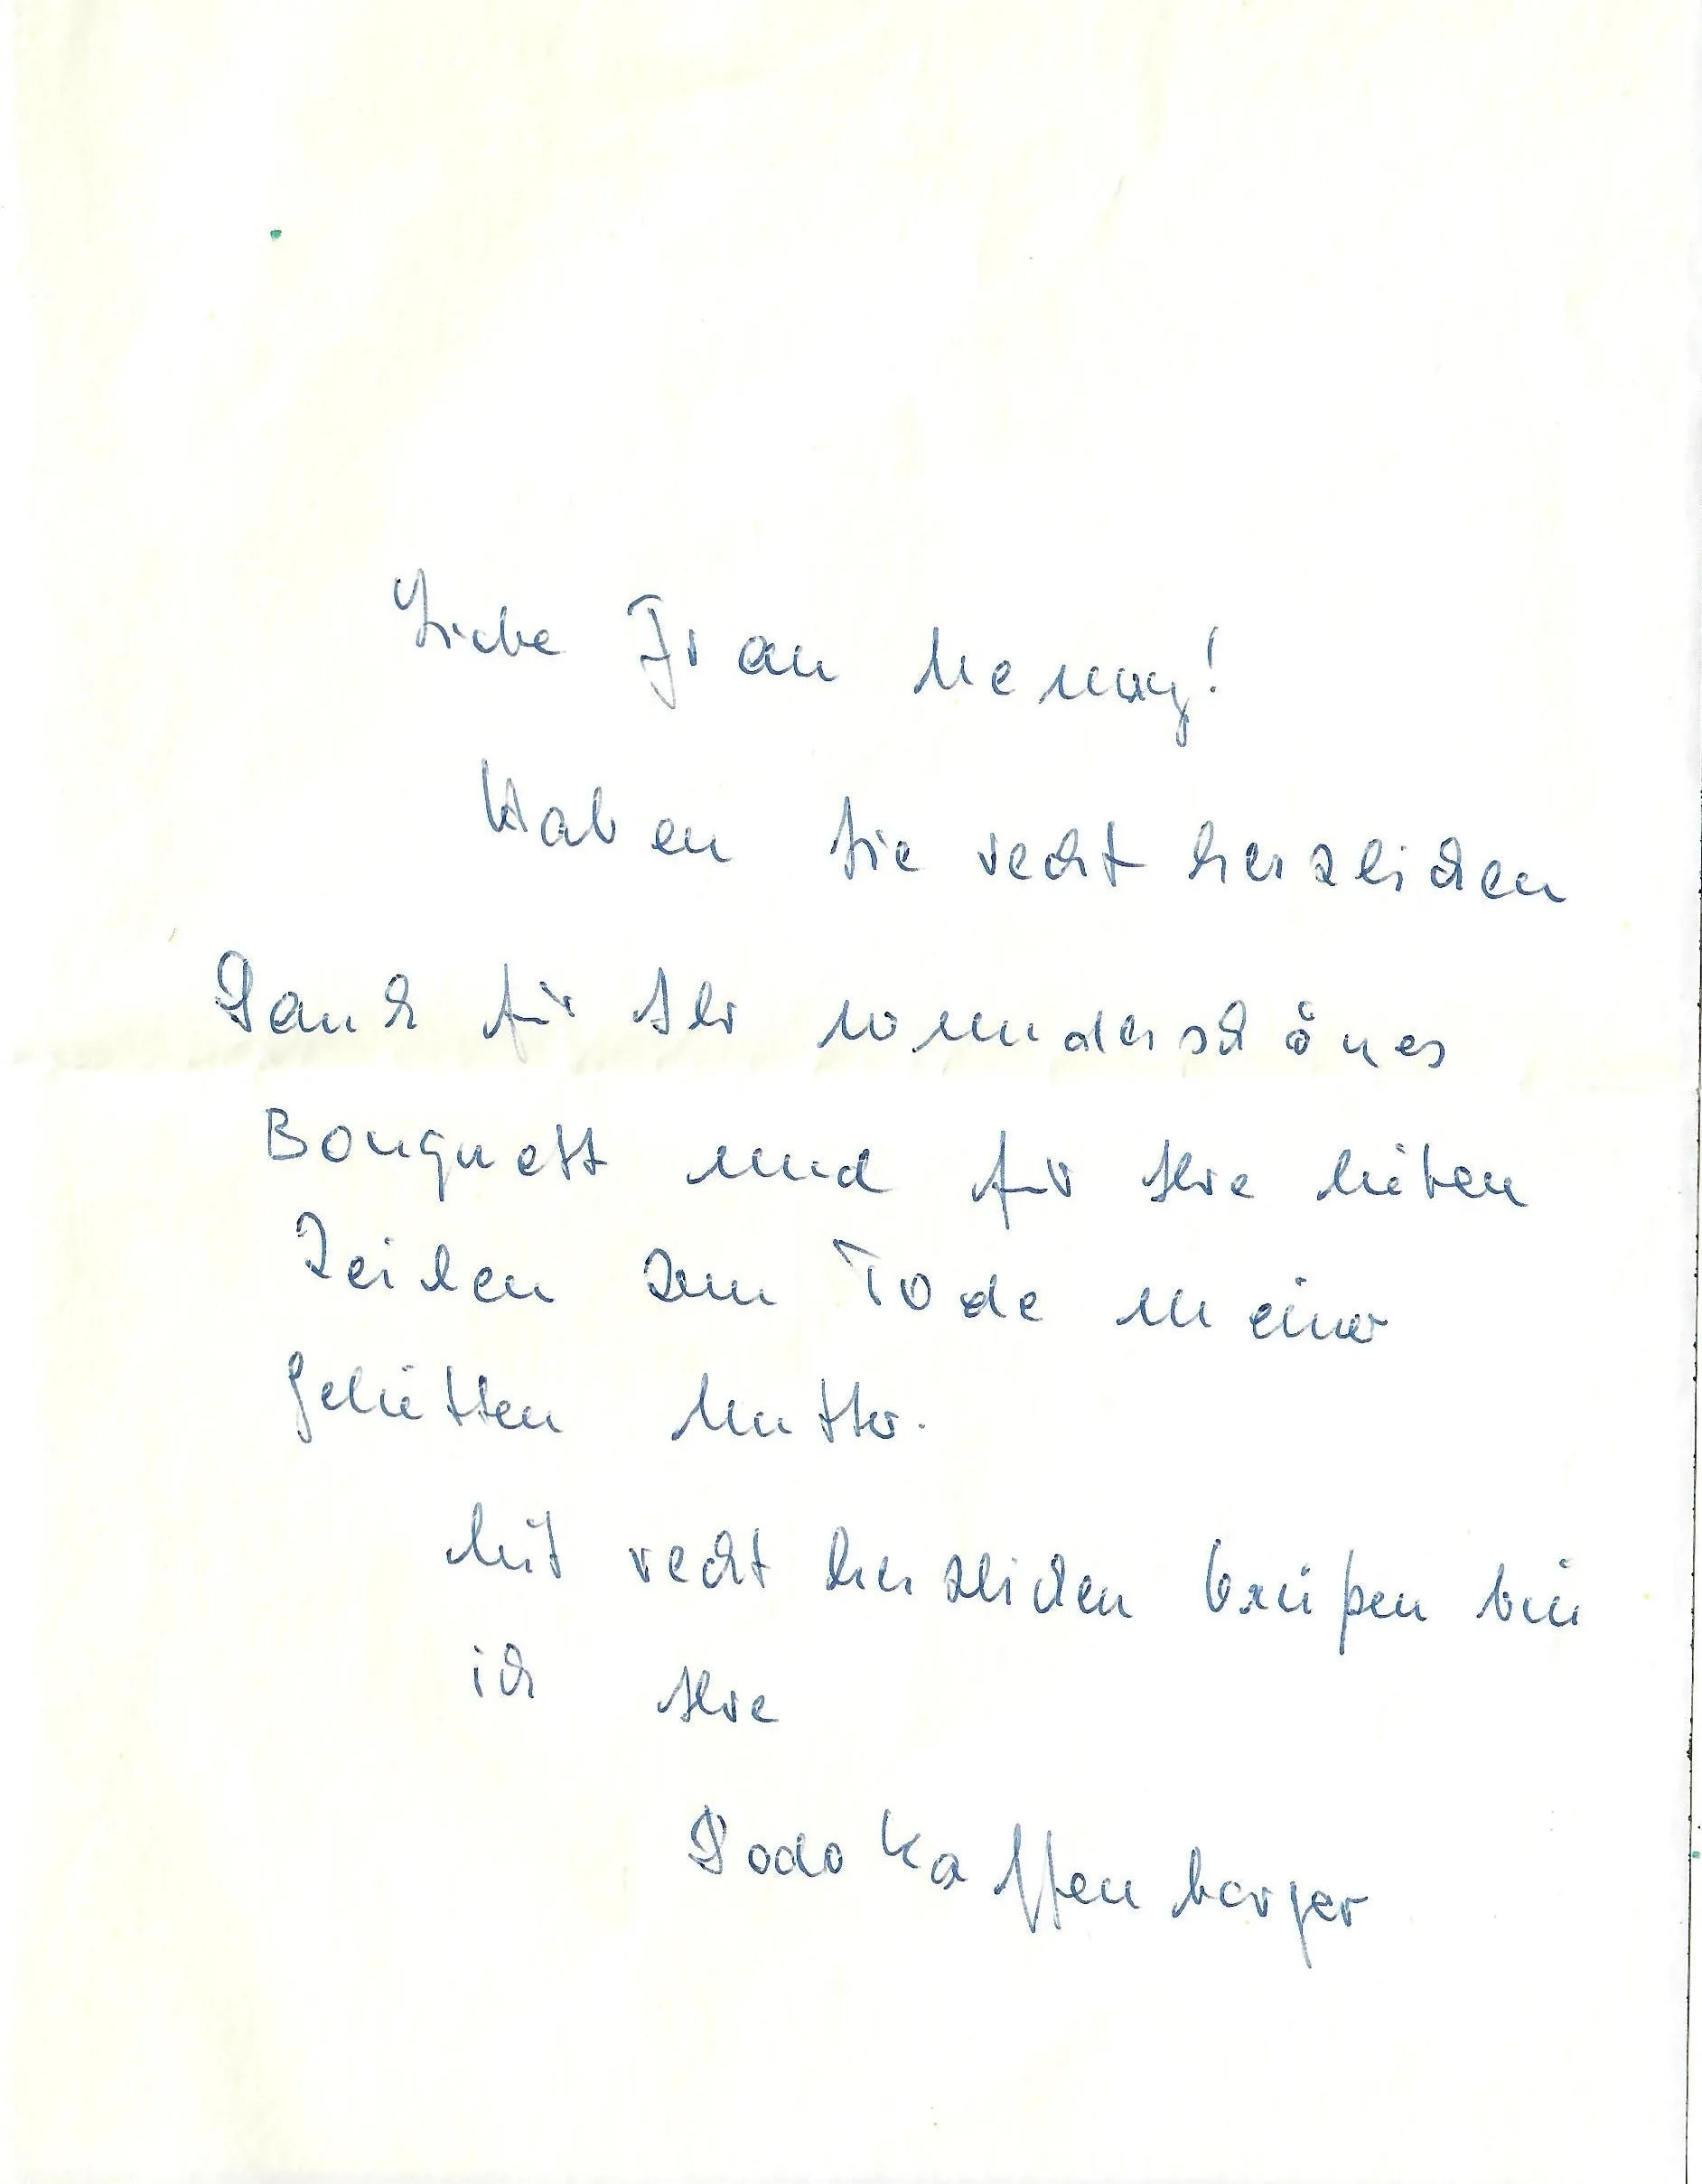 Liebe Frau
Haben Sie recht herzlichen
Dank für Ihr wunderschönes
Bouquett und für Ihre lieben
Zeilen zum Tode meiner
geliebten Mutter.
Mit recht herzlichen Grüßen bin
ich Ihre
Dodo Kaffenberger